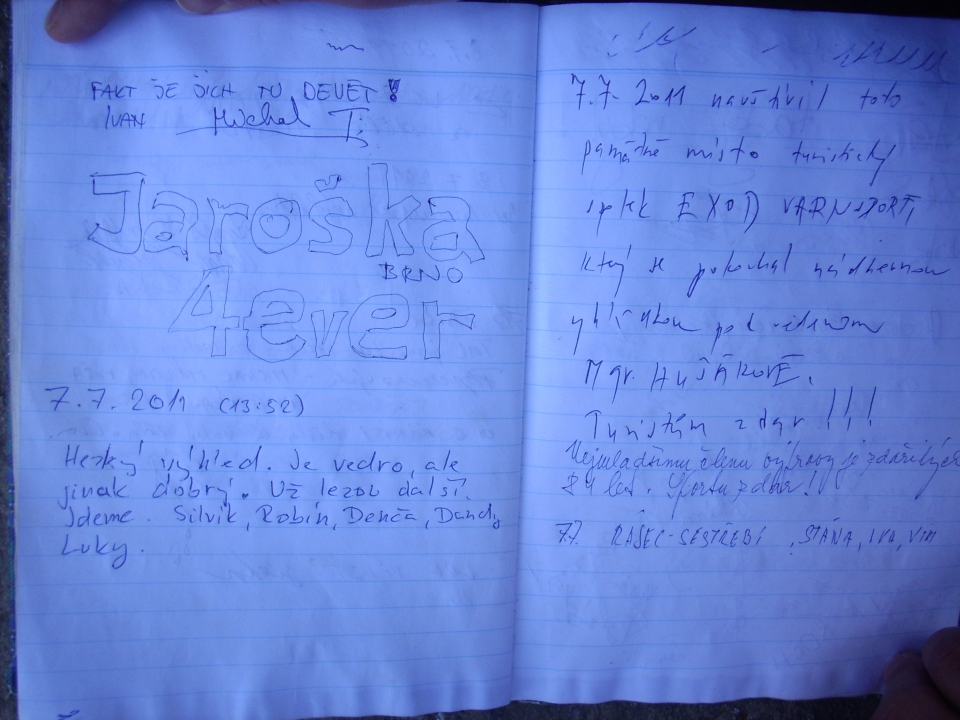 FAKT JE JICH TU DEVĚT!
IVAN Michal
Jaroška
BRNO
4ever
7.7.2011 (13:52)
Hezký výhled. Je vedro, ale
jinak dobrý. Už lezou další.
Jdeme. Silvik, Robin, Denča, Dandy
Luky.
7.7. 2011 navštívil toto
památné místo turistický
EXOD VARNSDORF,
který se pokochal nádhernou
vyhlídkou pod vedením
Mgr. HUŠÁKOVÉ.
Turistům zdar!!!
Nejmladšímu členu výpravy je zdařilých
84 let. Sportu zdar!
7.7. RÁJEC-JESTŘEBÍ, STÁŇA, IVA, VÍT